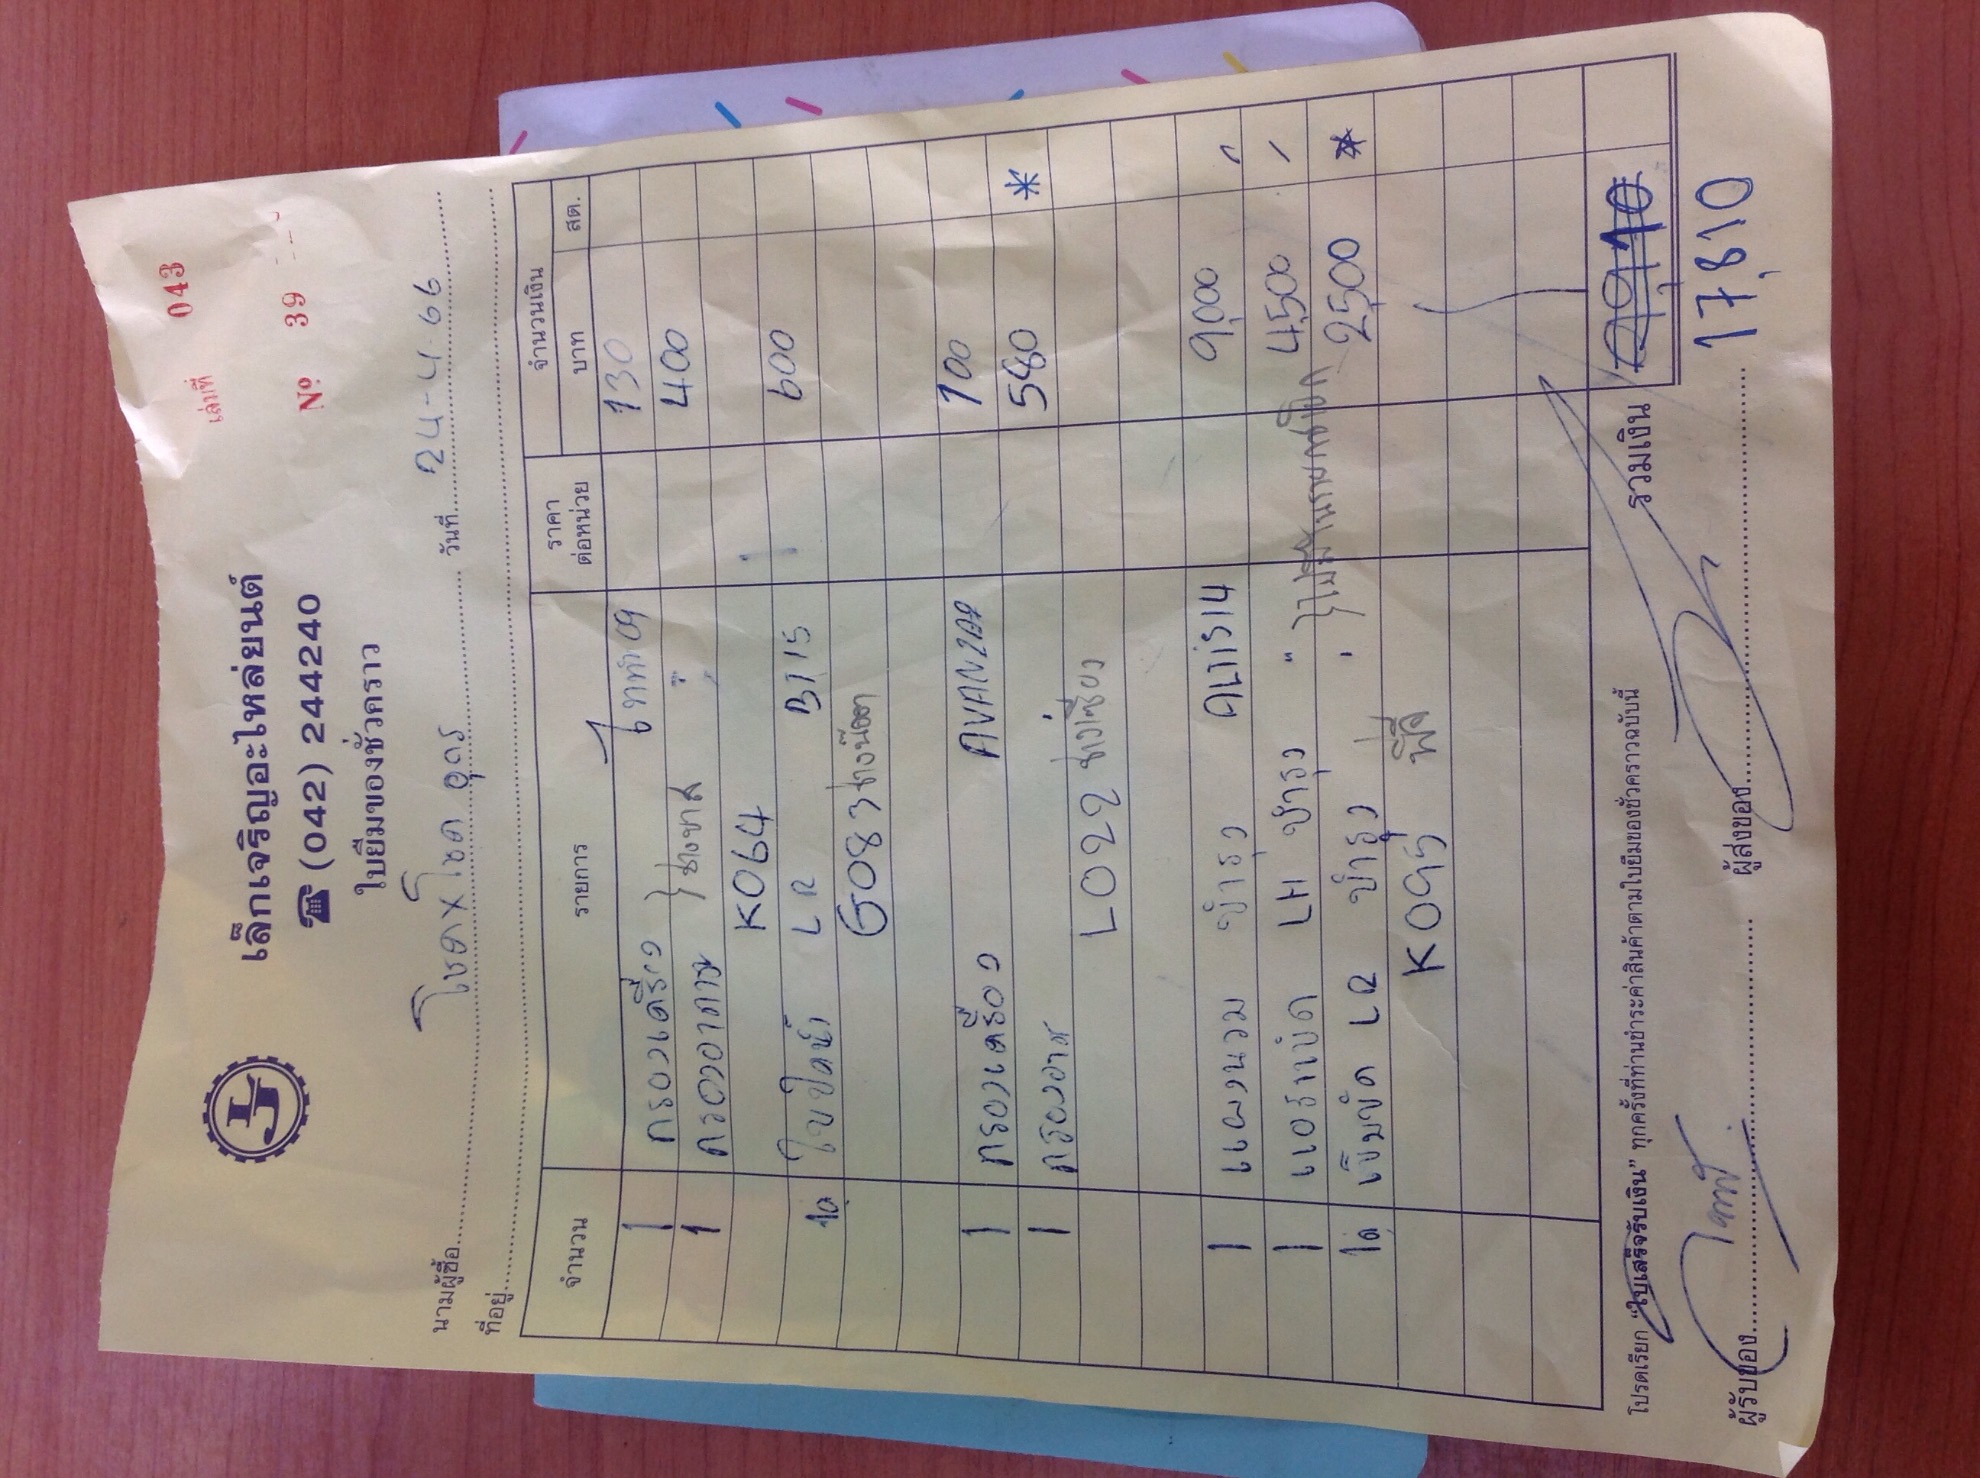 เล่มที่ 043
เล็กเจริญอะไหล่ยนต์
☎ (042) 244240
Nº 39
ใบยืมของชั่วคราว
นามผู้ซื้อ โชคxโชค อุดร วันที่ 24-4-66
ที่อยู่
จำนวน รายการ ราคาต่อหน่วย จำนวนเงิน
บาท สต.
1 กรองเครื่อง 130
1 กรองอากาศ " 400
K064
1คู่ ใบปัดน้ำ LR BT15 600
G083
1 กรองเครื่อง AVANZA 100
1 กรองอากาศ 580 *
L022
1 แผงนวม ชำรุด 9,000
1 LH ชำรุด " 4,500
1คู่ เข็มขัด LR ชำรุด " 2,500 *
K095
รวมเงิน
17,810
โปรดเรียก “ใบเสร็จรับเงิน” ทุกครั้งที่ท่านชำระค่าสินค้าตามใบยืมของชั่วคราวฉบับนี้
ผู้รับของ ผู้ส่งของ